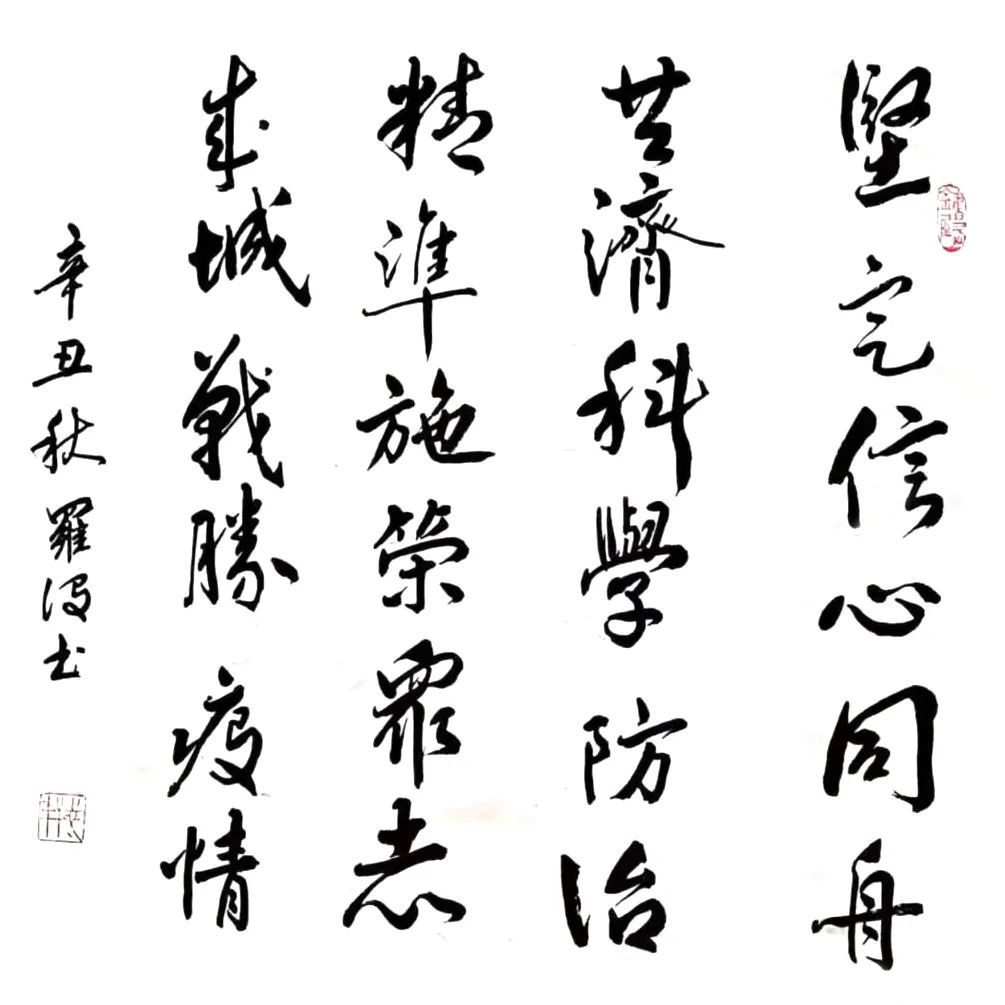 堅定信心同舟
共濟科學防治
精準施策眾志
成城戰勝疫情
辛丑秋羅书